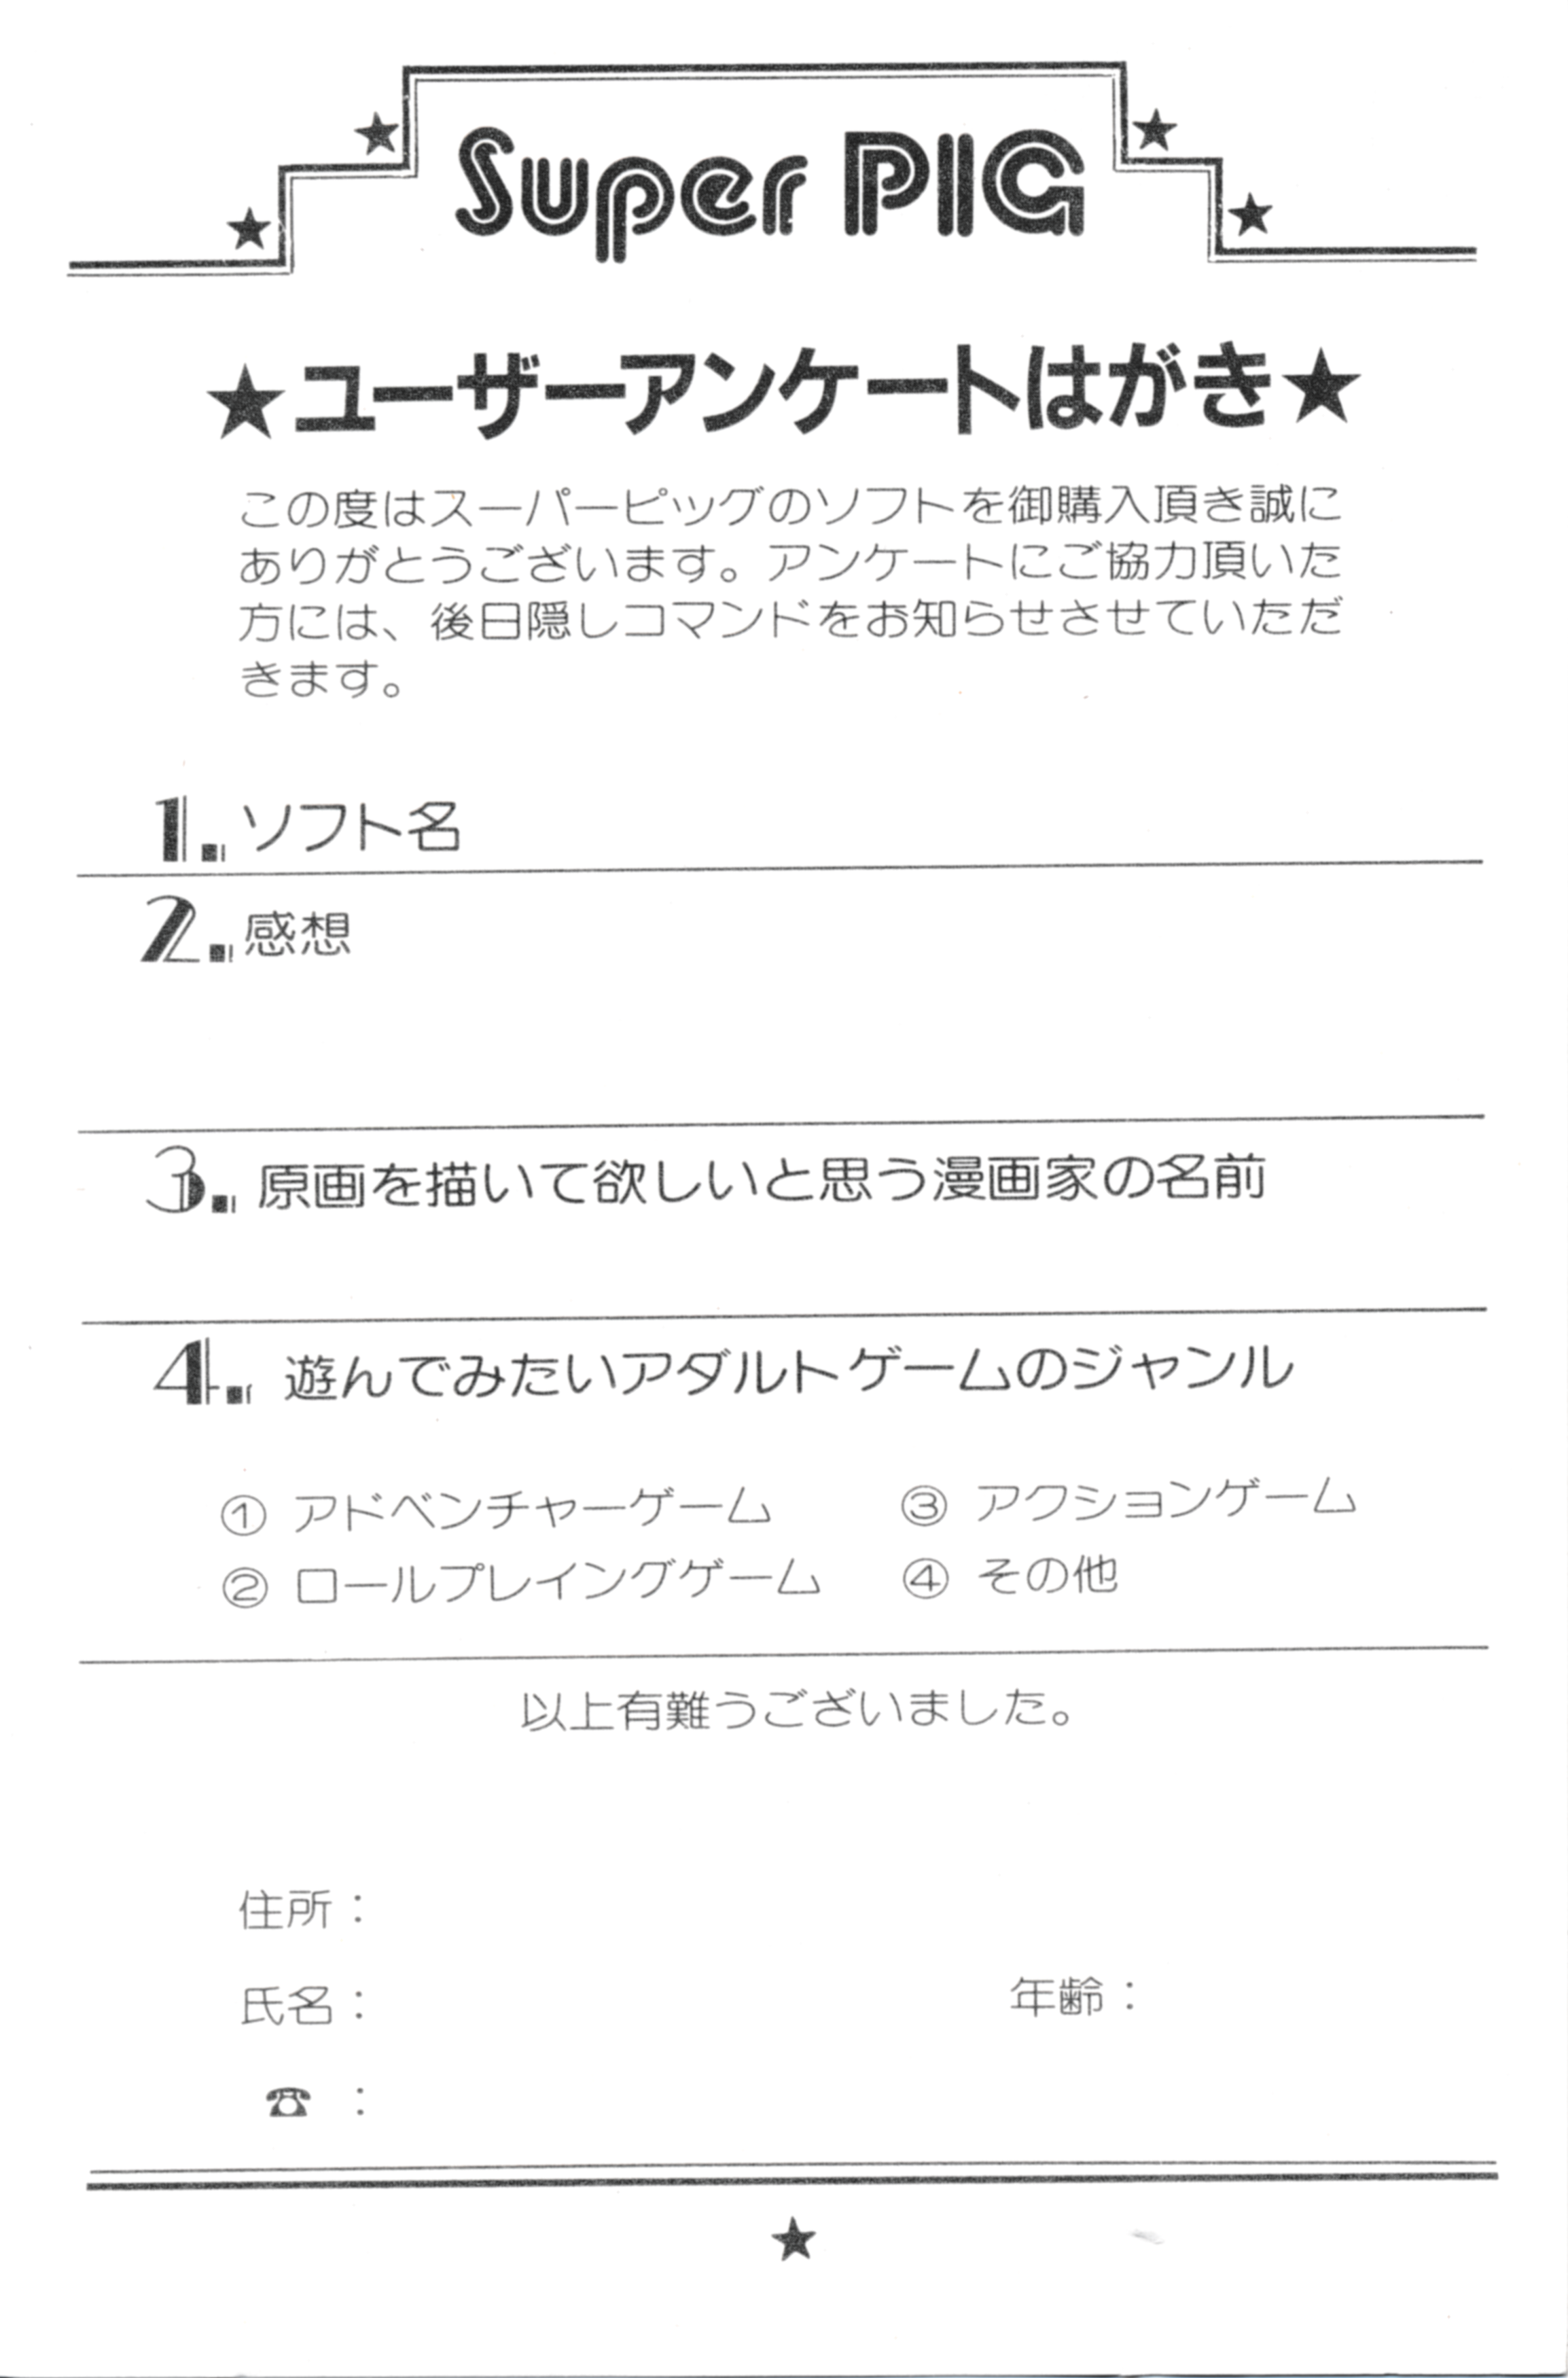 Super PIG
★ユーザーアンケートはがき★
この度はスーパーピッグのソフトを御購入頂き誠に
ありがとうございます。アンケートにご協力頂いた
方には、後日隠しコマンドをお知らせさせていただ
きます。
1. ソフト名
2. 感想
3. 原画を描いて欲しいと思う漫画家の名前
4. 遊んでみたいアダルトゲームのジャンル
① アドベンチャーゲーム ③ アクションゲーム
② ロールプレイングゲーム ④ その他
以上有難うございました。
住所：
氏名： 年齢：
☎ ：